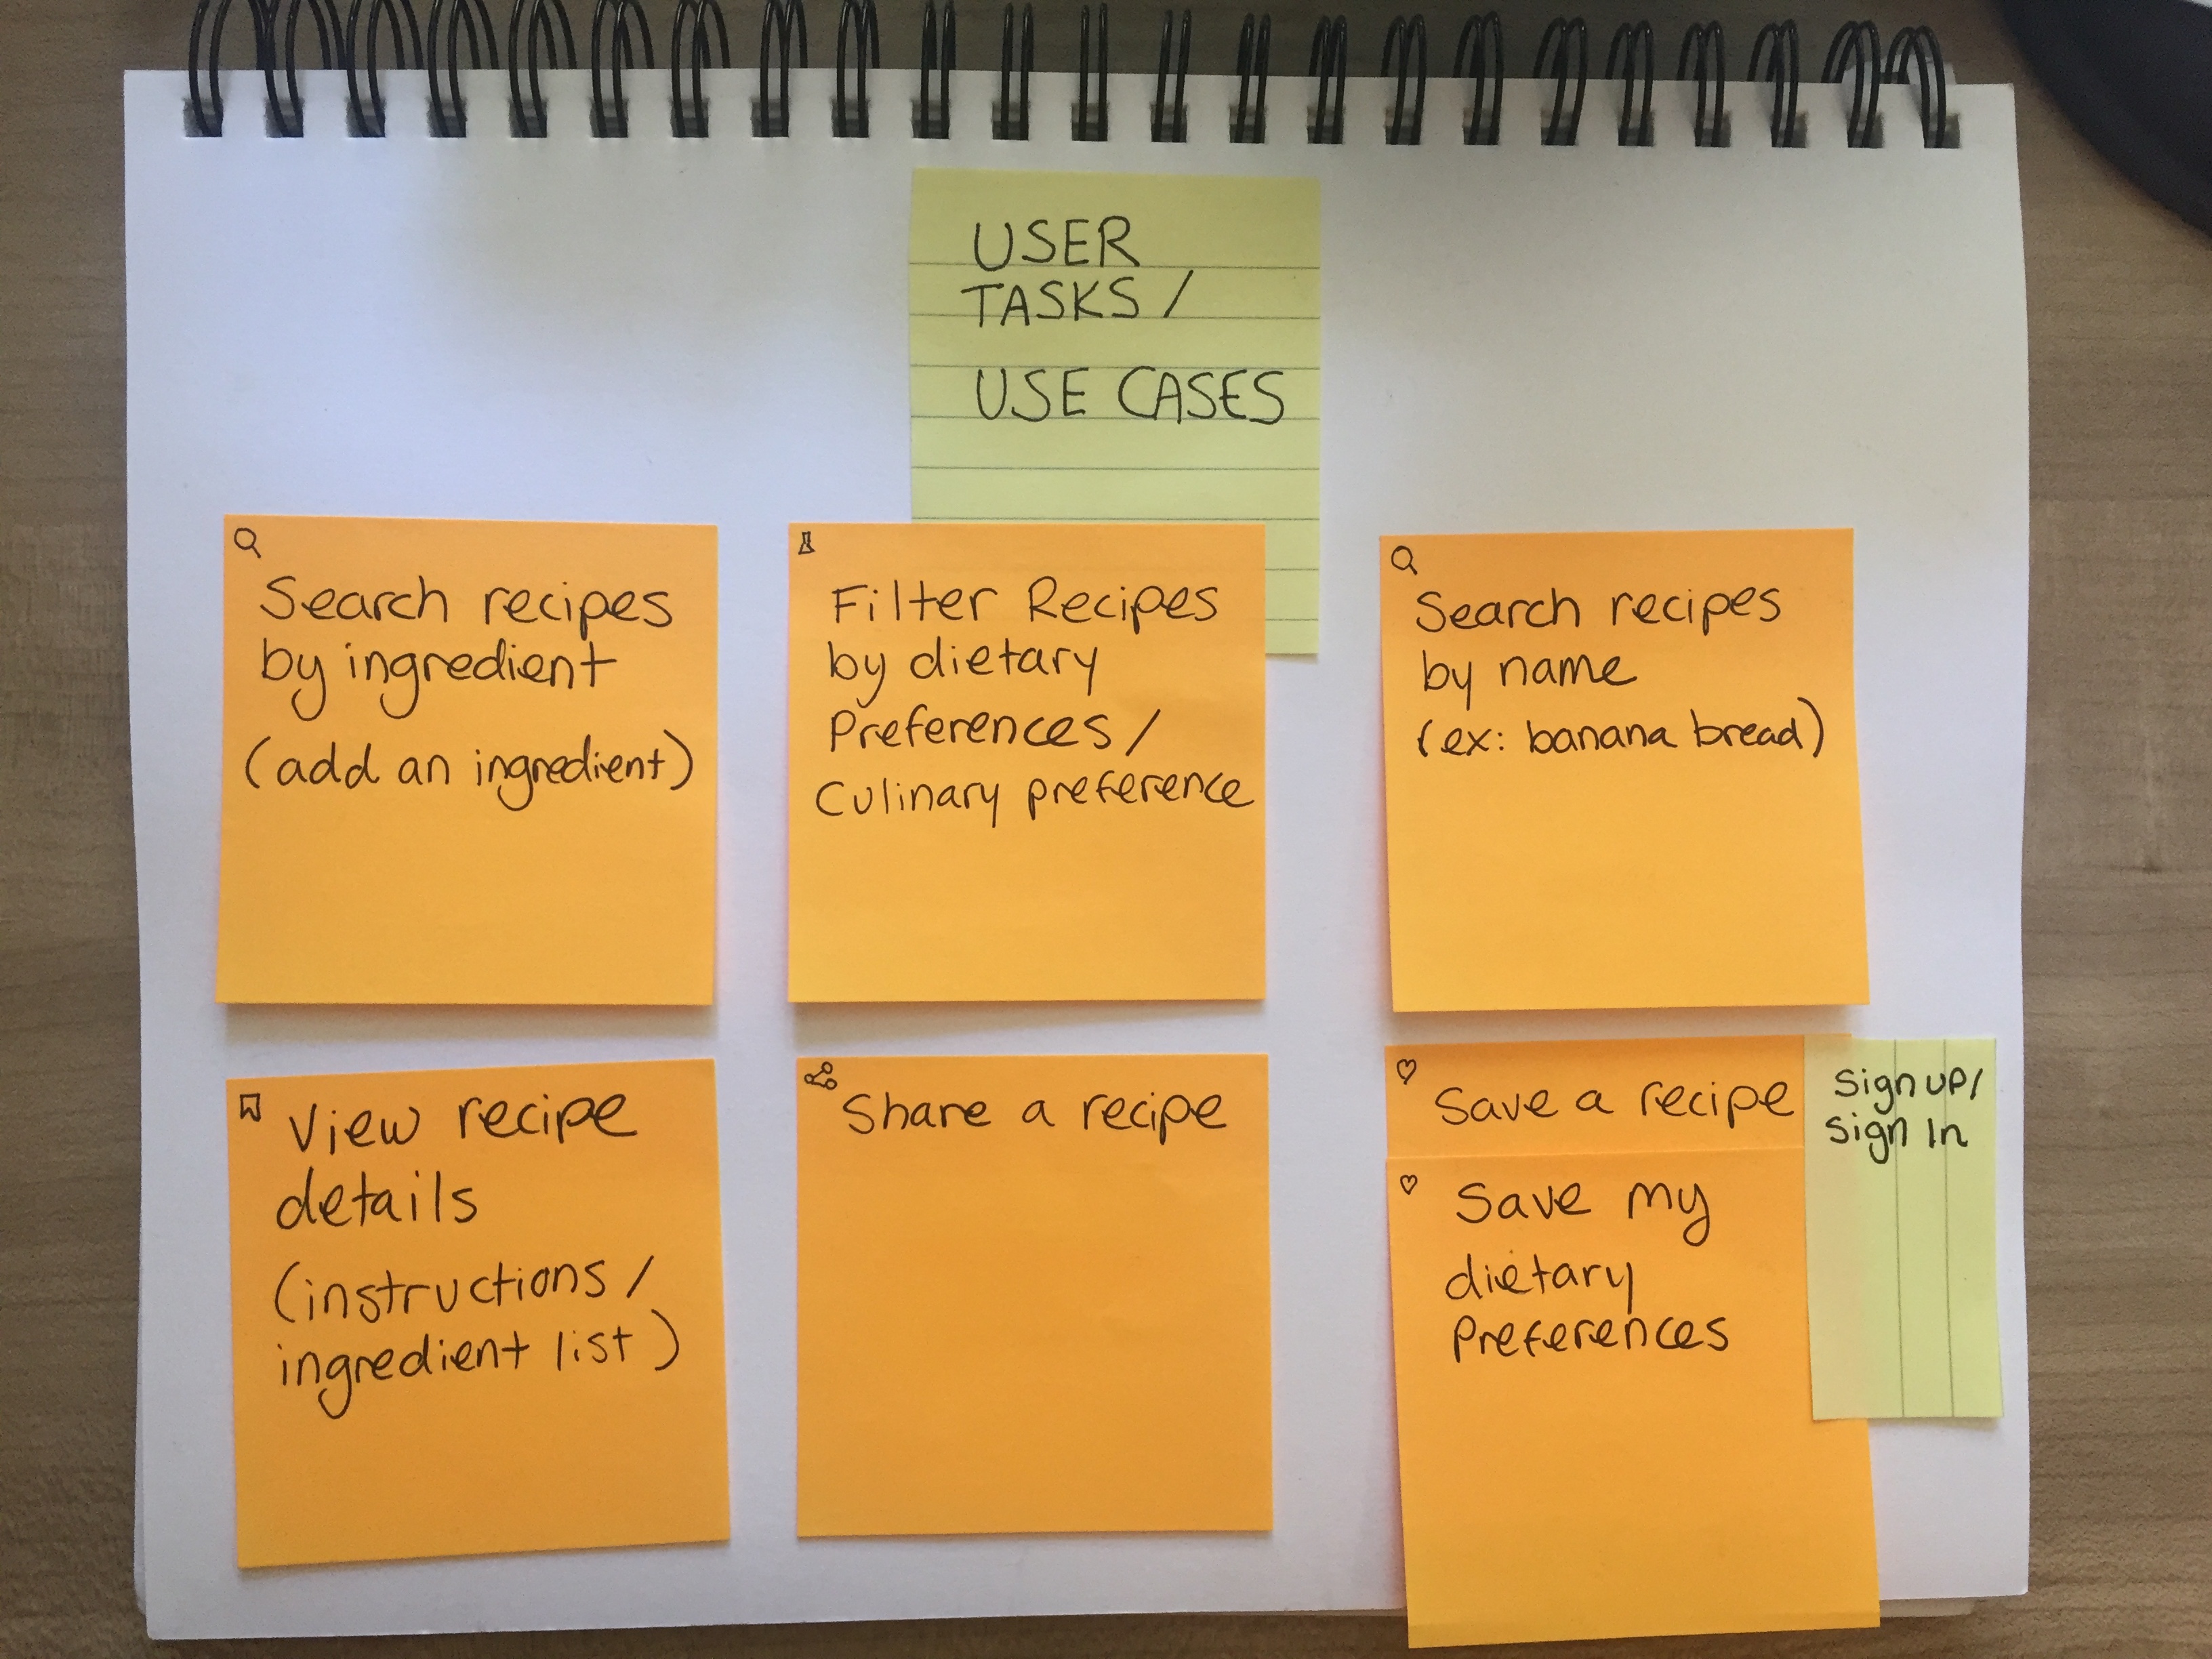 USER
TASKS /
USE CASES
Search recipes
by ingredient
(add an ingredient)
Filter Recipes
by dietary
Preferences /
Culinary preference
Search recipes
by name
(ex: banana bread)
View recipe
details
(instructions /
ingredient list)
Share a recipe
Save a recipe
Sign up/
Sign In
Save my
dietary
Preferences